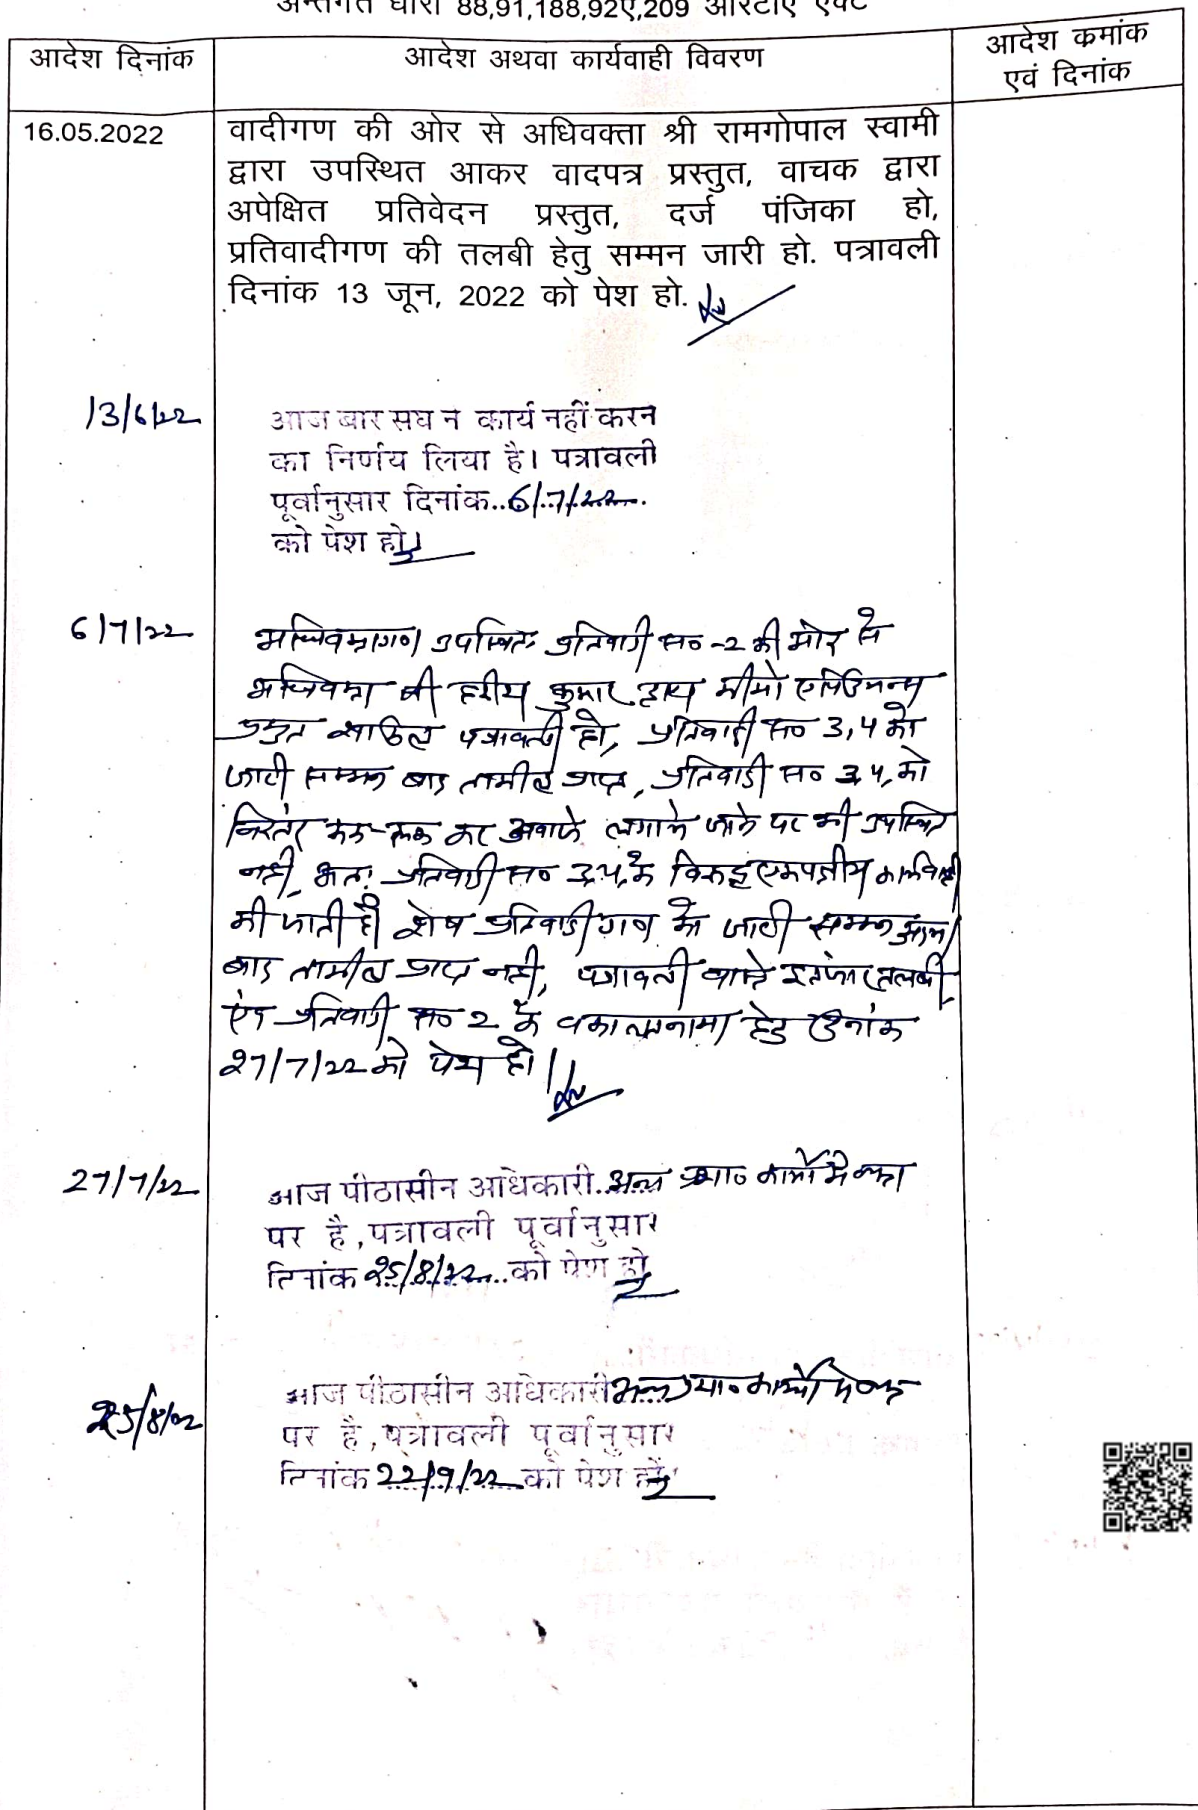 अन्तर्गत धारा 88,91,188,92ए,209 आरटीए एक्ट
आदेश दिनांक
आदेश अथवा कार्यवाही विवरण
आदेश कमांक
एवं दिनांक
16.05.2022
वादीगण की ओर से अधिवक्ता श्री रामगोपाल स्वामी
द्वारा उपस्थित आकर वादपत्र प्रस्तुत, वाचक द्वारा
अपेक्षित प्रतिवेदन प्रस्तुत, दर्ज पंजिका हो,
प्रतिवादीगण की तलबी हेतु सम्मन जारी हो. पत्रावली
दिनांक 13 जून, 2022 को पेश हो.
13/6/22
आज बार संघ न कार्य नहीं करन
का निर्णय लिया है। पत्रावली
पूर्वानुसार दिनांक..6/7/22.
को पेश हो।
6/7/22
अधिवक्तागण उपस्थित प्रतिवादी स० -2 की ओर से
अधिवक्ता श्री कुमार द्वारा मीमो
शामिल पत्रावली हो, प्रतिवादी स० 3,4 को
जारी सम्मन बाद तामील प्राप्त, प्रतिवादी स० 3,4, को
रुक-रुक कर आवाजे लगाने जाने पर भी उपस्थित
नही, अतः प्रतिवादी स० 3,4, के विरूद्ध एकपक्षीय कार्यवाही
की जाती है। शेष प्रतिवादीगण को जारी सम्मन
बाद तामील प्राप्त नही, पत्रावली वास्ते इन्तजार तलबी
एंव प्रतिवादी स० 2 के वकालतनामा हेतु दिनांक
27/7/22 को पेश हो।
27/7/22
आज पीठासीन अधिकारी..अन्य कार्य से
पर है, पत्रावली पूर्वानुसार
दिनांक 25/8/22...को पेश हो
25/8/22
आज पीठासीन अधिकारी अन्य
पर है, पत्रावली पूर्वानुसार
दिनांक 22/9/22 को पेश हो